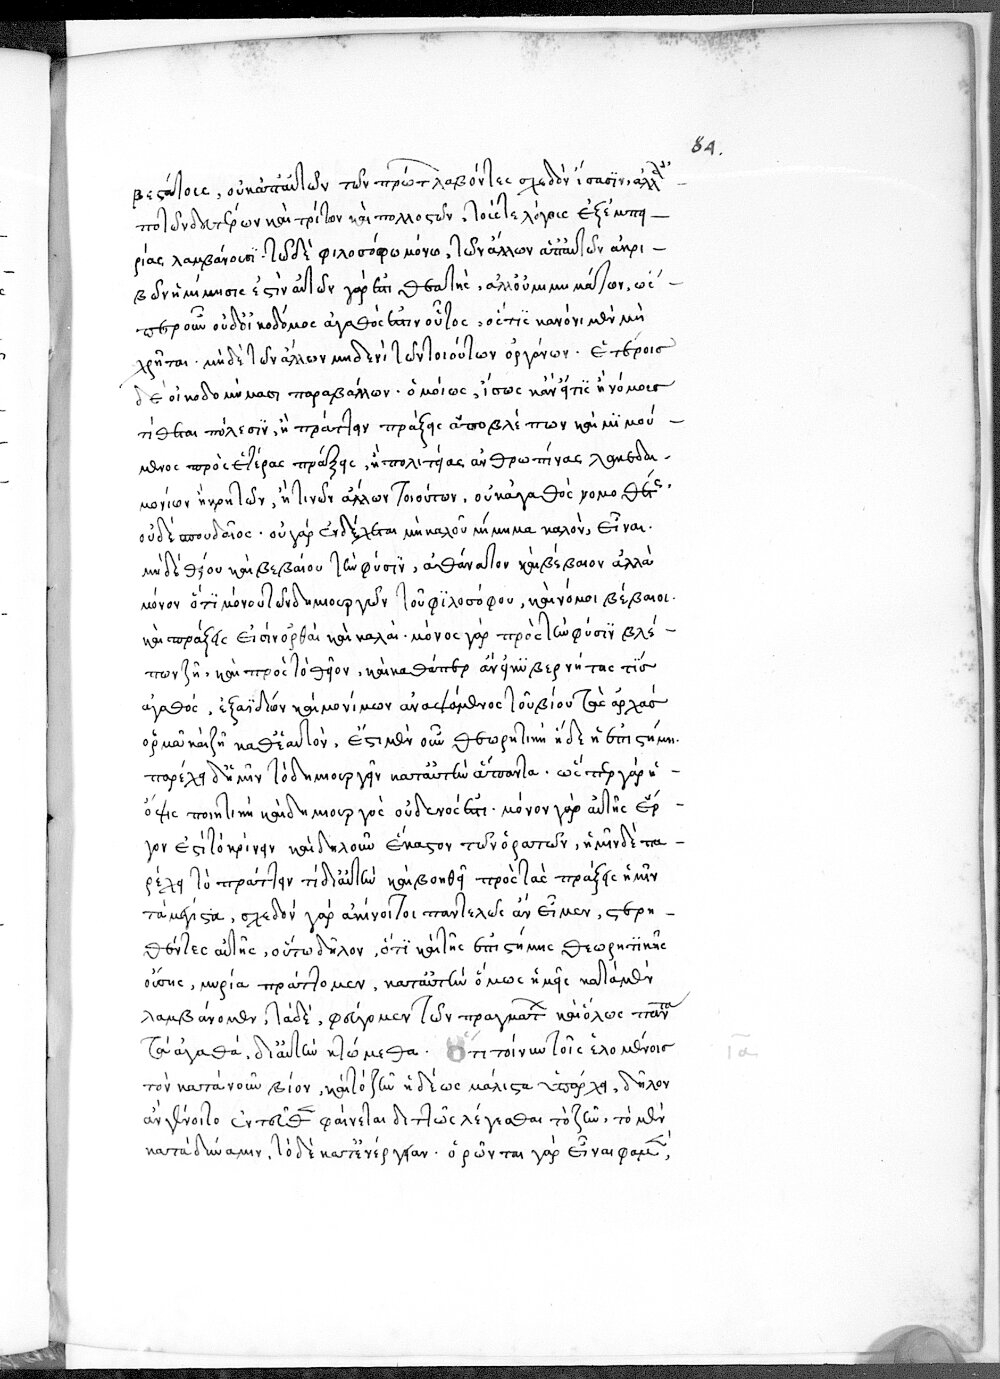 84.
βεστάτοις, οὐκ ἀπ' αὐτῶν τῶν πρώτων λαβόντες σχεδὸν ἴσασιν, ἀλλ' ἀ-
πὸ τῶν δευτέρων καὶ τρίτων καὶ πολλοστῶν, τούς τε λόγους ἐξ ἐμπει-
ρίας λαμβάνουσι· τῷ δὲ φιλοσόφῳ μόνῳ, τῶν ἄλλων ἀπ' αὐτῶν ἀκρι-
βῶν ἡ μίμησις ἐστὶν αὐτῶν γάρ ἐστι θεατής, ἀλλ' οὐ μιμημάτων, ὥσ-
περ οὖν οὐδ' οἰκοδόμος ἀγαθός ἐστιν οὗτος, ὅστις κανόνι μὲν μὴ
χρῆται· μηδὲ τῶν ἄλλων μηδενὶ τῶν τοιούτων ὀργάνων· ἑτέροις
δὲ οἰκοδομήμασι παραβάλλων· ὁμοίως, ἴσως κἂν εἴ τις ἢ νόμους
τίθεται πόλεσιν, ἢ πράττει πράξεις ἀποβλέπων καὶ μιμού-
μενος πρὸς ἑτέρας πράξεις, ἢ πολιτείας ἀνθρωπίνας λακεδαι-
μονίων ἢ κρητῶν, ἤ τινων ἄλλων τοιούτων, οὐκ ἀγαθὸς νομοθέτης,
οὐδὲ σπουδαῖος· οὐ γὰρ ἐνδέχεται μὴ καλοῦ μίμημα καλὸν, εἶναι·
μηδὲ θείου καὶ βεβαίου τὴν φύσιν, ἀθάνατον καὶ βέβαιον ἀλλὰ
μόνον ὅτι μόνου τῶν δημιουργῶν τοῦ φιλοσόφου, καὶ νόμοι βέβαιοι·
καὶ πράξεις εἰσὶν ὀρθαὶ καὶ καλαί· μόνος γὰρ πρὸς τὴν φύσιν βλέ-
πων ζῇ, καὶ πρὸς τὸ θεῖον, καὶ καθάπερ ἂν εἰ κυβερνήτης τις
ἀγαθός, ἐξ ἀϊδίων καὶ μονίμων ἀναψάμενος τοῦ βίου τὰς ἀρχὰς
ὁρμᾷ καὶ ζῇ καθ' ἑαυτόν, ἔστι μὲν οὖν θεωρητικὴ ἥδε ἡ ἐπιστήμη·
παρέχει δ' ἡμῖν τὸ δημιουργεῖν κατ' αὐτὴν ἅπαντα· ὥσπερ γὰρ ἡ
ὄψις ποιητικὴ καὶ δημιουργὸς οὐδενός ἐστι· μόνον γὰρ αὐτῆς ἔρ-
γον ἐστὶ τὸ κρίνειν καὶ δηλοῦν ἕκαστον τῶν ὁρατῶν, ἡμῖν δὲ πα-
ρέχει τὸ πράττειν τι δι' αὐτὴν καὶ βοηθεῖ πρὸς τὰς πράξεις ἡμῖν
τὰ μέγιστα, σχεδὸν γὰρ ἀκίνητοι παντελῶς ἂν εἶμεν, στερη-
θέντες αὐτῆς, οὕτω δῆλον, ὅτι καὶ τῆς ἐπιστήμης θεωρητικῆς
οὔσης, μυρία πράττομεν, κατ' αὐτὴν ὅμως ἡμεῖς καὶ τὰ μὲν
λαμβάνομεν, τὰ δὲ, φεύγομεν τῶν πραγμάτων καὶ ὅλως πάντα
τὰ ἀγαθά, δι' αὐτὴν κτώμεθα· Ὅτι τοίνυν τοῖς ἑλομένοις
ια
τὸν κατὰ νοῦν βίον, καὶ τὸ ζῆν ἡδέως μάλιστα ὑπάρχει, δῆλον
ἂν γένοιτο ἐντεῦθεν φαίνεται διττῶς λέγεσθαι τὸ ζῆν, τὸ μὲν
κατὰ δύναμιν, τὸ δὲ κατ' ἐνέργειαν· ὁρῶνται γὰρ εἶναι φαμέν,